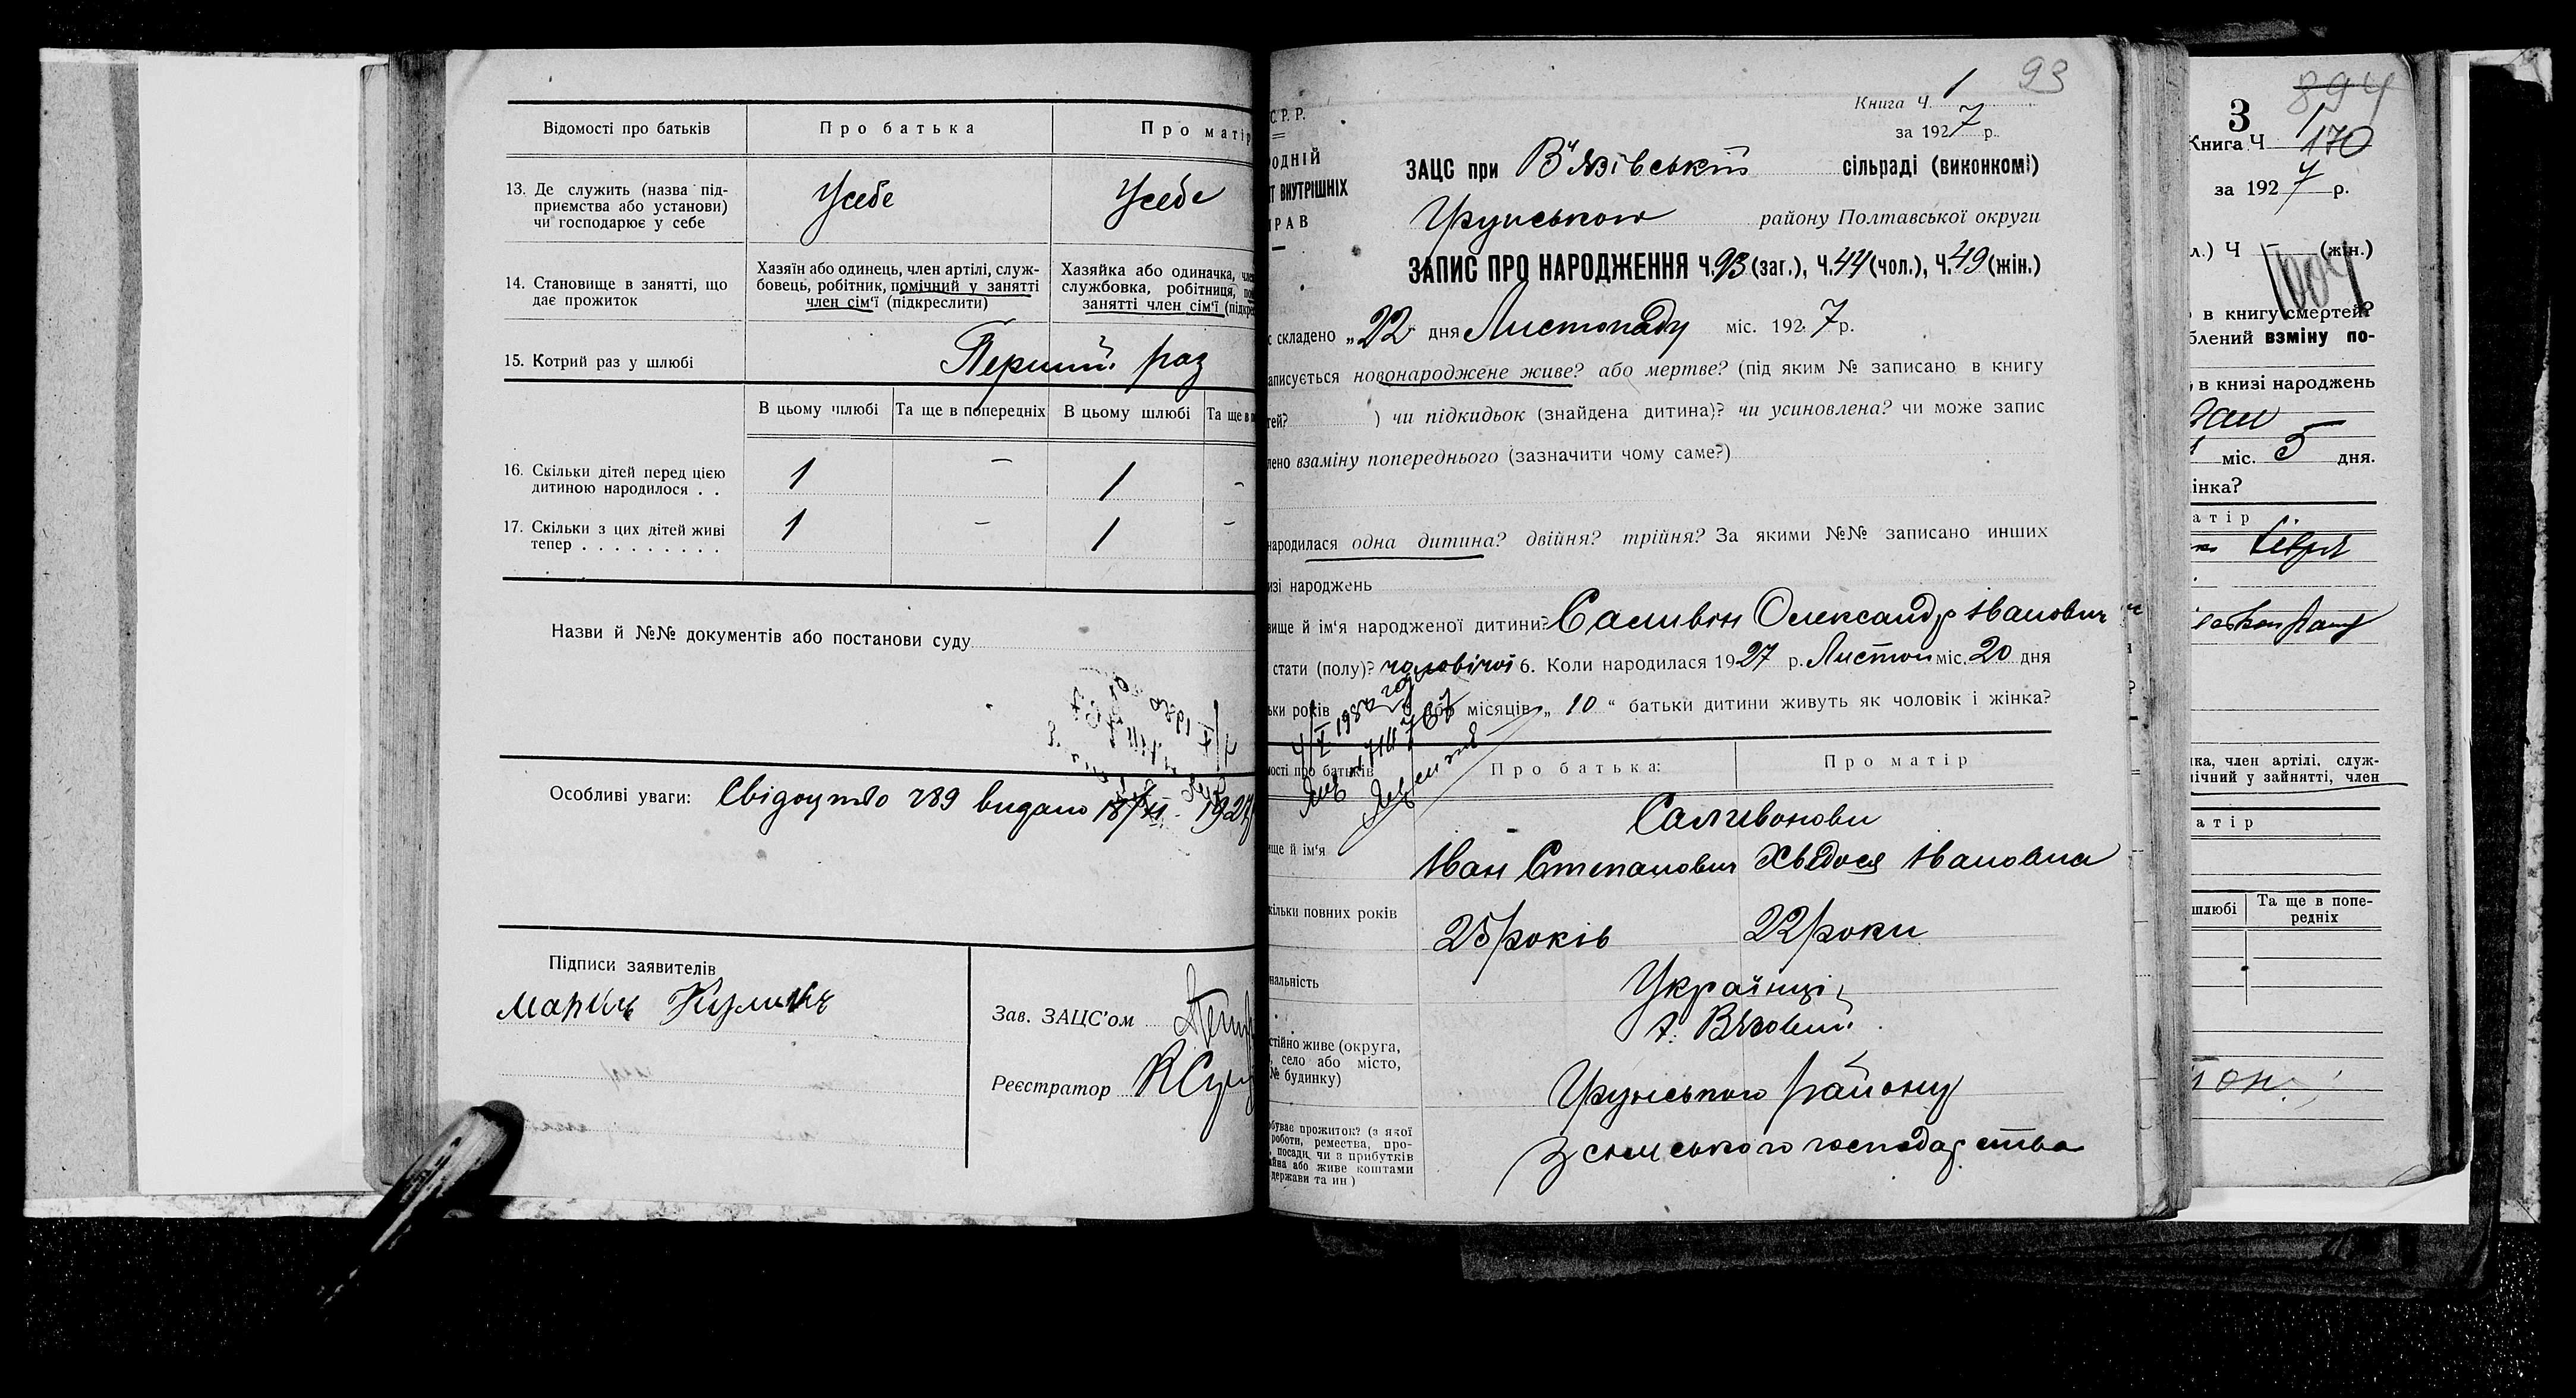 Відомості про батьків
Про батька
Про матір
13. Де служить (назва під-
приємства або установи)
чи господарює у себе
Усебе
Усебе
14. Становище в занятті, що
дає прожиток
Хазяїн або одинець, член артілі, служ-
бовець, робітник, помічний у занятті
член сім'ї (підкреслити)
Хазяйка або одиначка, чле
службовка, робітниця, по
занятті член сім'ї (підкре
15. Котрий раз у шлюбі
Перший раз
В цьому шлюбі
Та ще в попередніх
В цьому шлюбі
Та ще в п
16. Скільки дітей перед цією
дитиною народилося . .
1 – 1 –
17. Скільки з цих дітей живі
тепер . . . . . . . . .
1 – 1 –
Назви й №№ документів або постанови суду
Особливі уваги: Свідоцтво 289 видано 18/XI 1927
Підписи заявителів
Зав. ЗАЦС'ом
Реєстратор
93
С.Р.Р.
Книга Ч. 1
за 1927 р.
ОДНІЙ
Т ВНУТРІШНІХ
РАВ
ЗАЦС при В'язівській сільраді (виконкомі)
району Полтавської округи
ЗАПИС ПРО НАРОДЖЕННЯ Ч.93 (заг.), Ч.44 (чол.), Ч.49 (жін.)
с складено „22 дня Листопаду міс. 1927 р.
аписується новонароджене живе? або мертве? (під яким № записано в книгу
тей? ) чи підкидьок (знайдена дитина)? чи усиновлена? чи може запис
лено взаміну попереднього (зазначити чому саме?)
народилася одна дитина? двійня? трійня? За якими №№ записано инших
изі народжень
вище й ім'я народженої дитини? Саливін Олександр Іванович
стати (полу)? чоловічої 6. Коли народилася 1927 р. Листоп міс. 20 дня
ьки років або місяців „ 10 “ батьки дитини живуть як чоловік і жінка?
мості про батьків
Про батька:
Про матір
Саливонови
ще й ім'я
Іван Степанович Хведося Івановна
кільки повних років
25 років
22 роки
нальність
Українці
стійно живе (округа,
, село або місто,
№ будинку)
району
обуває прожиток? (з якої
роботи, ремества, про-
посади, чи з прибутків
айна або живе коштами
держави та ин )
з сільського господарства
3
894
Книга Ч 1
170
за 1927 р.
л.) Ч (жін.)
1004
в книгу смертей?
блений взміну по-
, в книзі народжень
міс. 5 дня.
інка?
атір
ка, член артілі, служ-
мічний у зайнятті, член
атір
шлюбі
Та ще в попе-
редніх